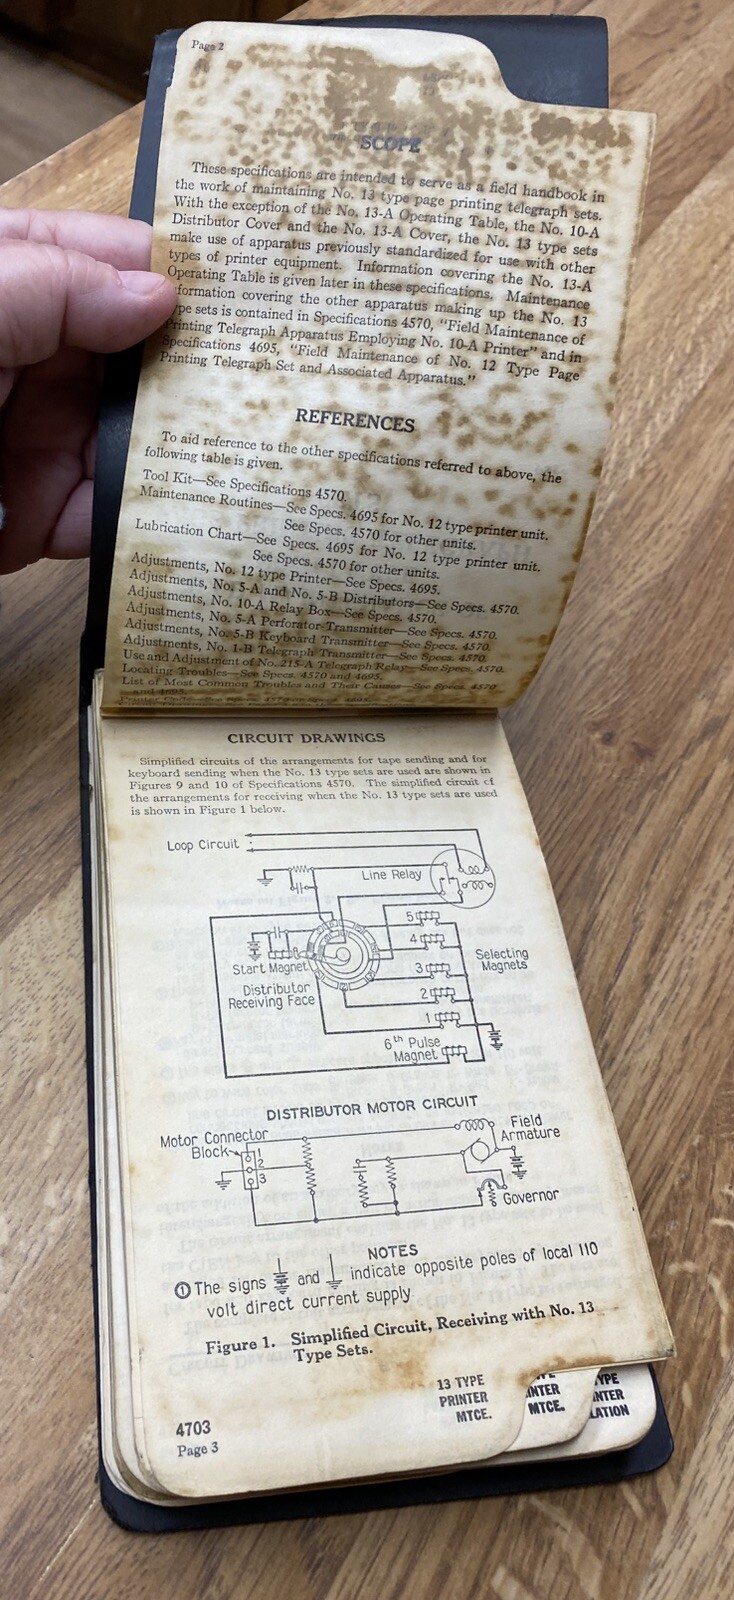 Page 2
SCOPE
These specifications are intended to serve as a field handbook in
the work of maintaining No. 13 type page printing telegraph sets.
With the exception of the No. 13-A Operating Table, the No. 10-A
Distributor Cover and the No. 13-A Cover, the No. 13 type sets
make use of apparatus previously standardized for use with other
types of printer equipment. Information covering the No. 13-A
Operating Table is given later in these specifications. Maintenance
nformation covering the other apparatus making up the No. 13
ype sets is contained in Specifications 4570, "Field Maintenance of
Printing Telegraph Apparatus Employing No. 10-A Printer" and in
Specifications 4695, "Field Maintenance of No. 12 Type Page
Printing Telegraph Set and Associated Apparatus."
REFERENCES
To aid reference to the other specifications referred to above, the
following table is given.
Tool Kit—See Specifications 4570.
Maintenance Routines—See Specs. 4695 for No. 12 type printer unit.
See Specs. 4570 for other units.
Lubrication Chart—See Specs. 4695 for No. 12 type printer unit.
See Specs. 4570 for other units.
Adjustments, No. 12 type Printer—See Specs. 4695.
Adjustments, No. 5-A and No. 5-B Distributors—See Specs. 4570.
Adjustments, No. 10-A Relay Box—See Specs. 4570.
Adjustments, No. 5-A Perforator-Transmitter—See Specs. 4570.
Adjustments, No. 5-B Keyboard Transmitter—See Specs. 4570.
Adjustments, No. 1-B Telegraph Transmitter—See Specs. 4570.
Use and Adjustment of No. 215-A Telegraph Relay—See Specs. 4570.
Locating Troubles—See Specs. 4570 and 4695.
List of Most Common Troubles and Their Causes—See Specs. 4570
and 4695.
CIRCUIT DRAWINGS
Simplified circuits of the arrangements for tape sending and for
keyboard sending when the No. 13 type sets are used are shown in
Figures 9 and 10 of Specifications 4570. The simplified circuit of
the arrangements for receiving when the No. 13 type sets are used
is shown in Figure 1 below.
Loop Circuit
Line Relay
5
4
3
2
1
Selecting
Magnets
Start Magnet
Distributor
Receiving Face
6th Pulse
Magnet
DISTRIBUTOR MOTOR CIRCUIT
Motor Connector
Block
1
2
3
Field
Armature
Governor
NOTES
① The signs and indicate opposite poles of local 110
volt direct current supply
Figure 1. Simplified Circuit, Receiving with No. 13
Type Sets.
4703
Page 3
13 TYPE
PRINTER
MTCE.
INTER
MTCE.
YPE
INTER
LATION